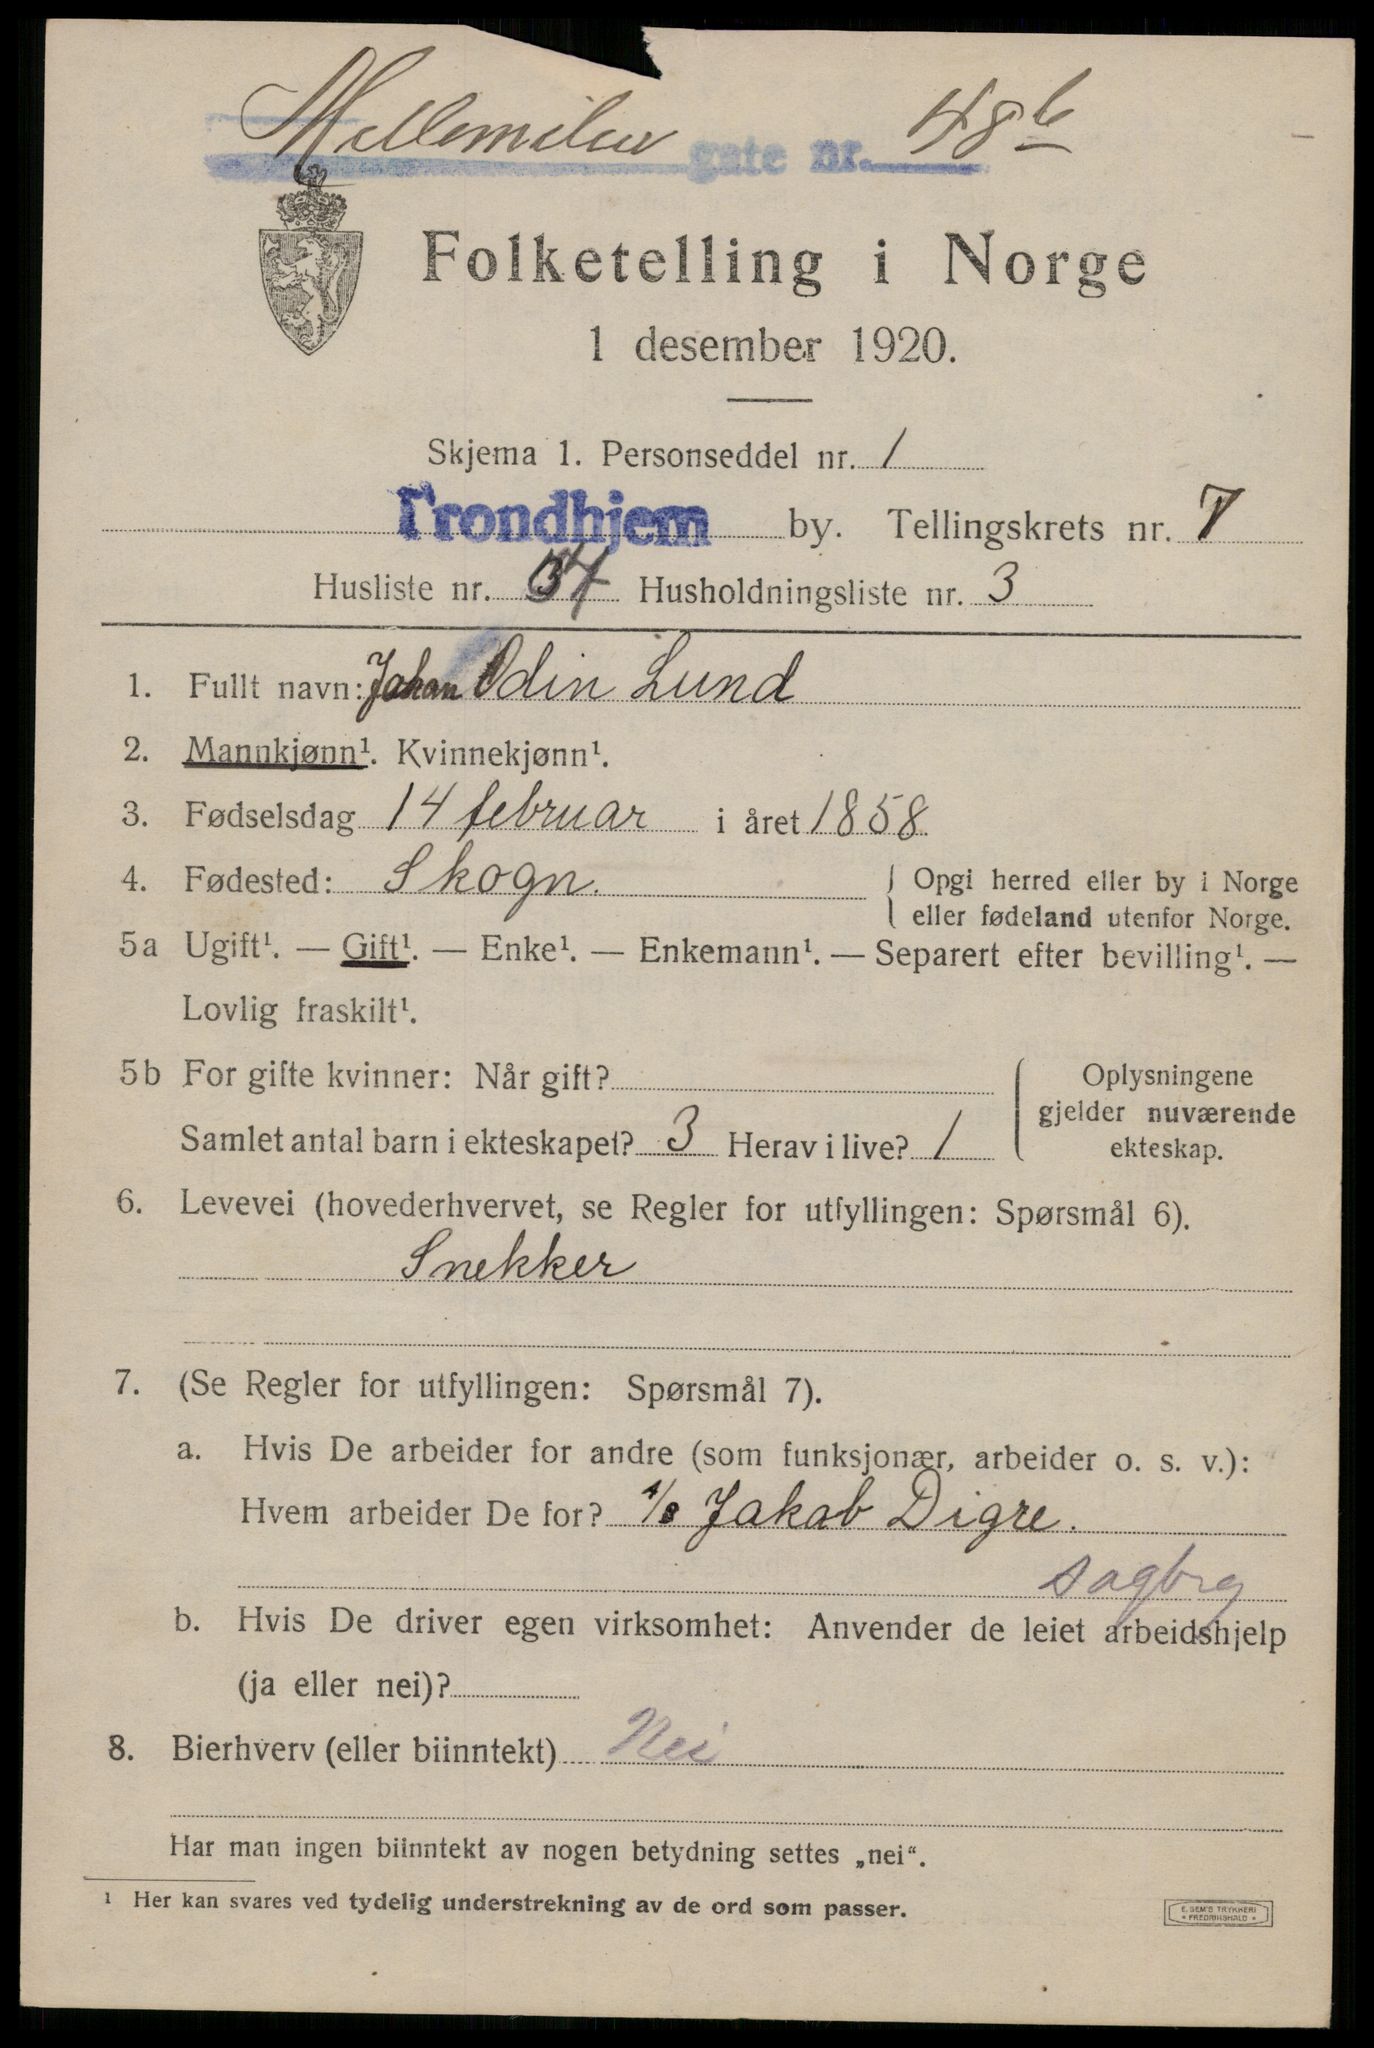 Mellemilen gate nr. 48 b
Folketelling i Norge
1 desember 1920.
Skjema 1. Personseddel nr. 1
Trondhjem by. Tellingskrets nr. 7
Husliste nr. 34 Husholdningsliste nr. 3
1. Fullt navn: Johan Odin Lund
2. Mannkjønn¹. Kvinnekjønn¹.
3. Fødselsdag 14 februar i året 1858
4. Fødested: Skogn. { Opgi herred eller by i Norge
eller fødeland utenfor Norge.
5a Ugift¹. — Gift¹. — Enke¹. — Enkemann¹. — Separert efter bevilling¹. —
Lovlig fraskilt¹.
5b For gifte kvinner: Når gift?
Samlet antal barn i ekteskapet? 3 Herav i live? 1
Oplysningene
gjelder nuværende
ekteskap.
6. Levevei (hovederhvervet, se Regler for utfyllingen: Spørsmål 6).
Snekker
7. (Se Regler for utfyllingen: Spørsmål 7).
a. Hvis De arbeider for andre (som funksjonær, arbeider o. s. v.):
Hvem arbeider De for? A/S Jakob Digre.
sagbrg
b. Hvis De driver egen virksomhet: Anvender de leiet arbeidshjelp
(ja eller nei)?
8. Bierhverv (eller biinntekt) Nei
Har man ingen biinntekt av nogen betydning settes „nei“.
¹ Her kan svares ved tydelig understrekning av de ord som passer.
E. SEM'S TRYKKERI
• FREDRIKSHALD •